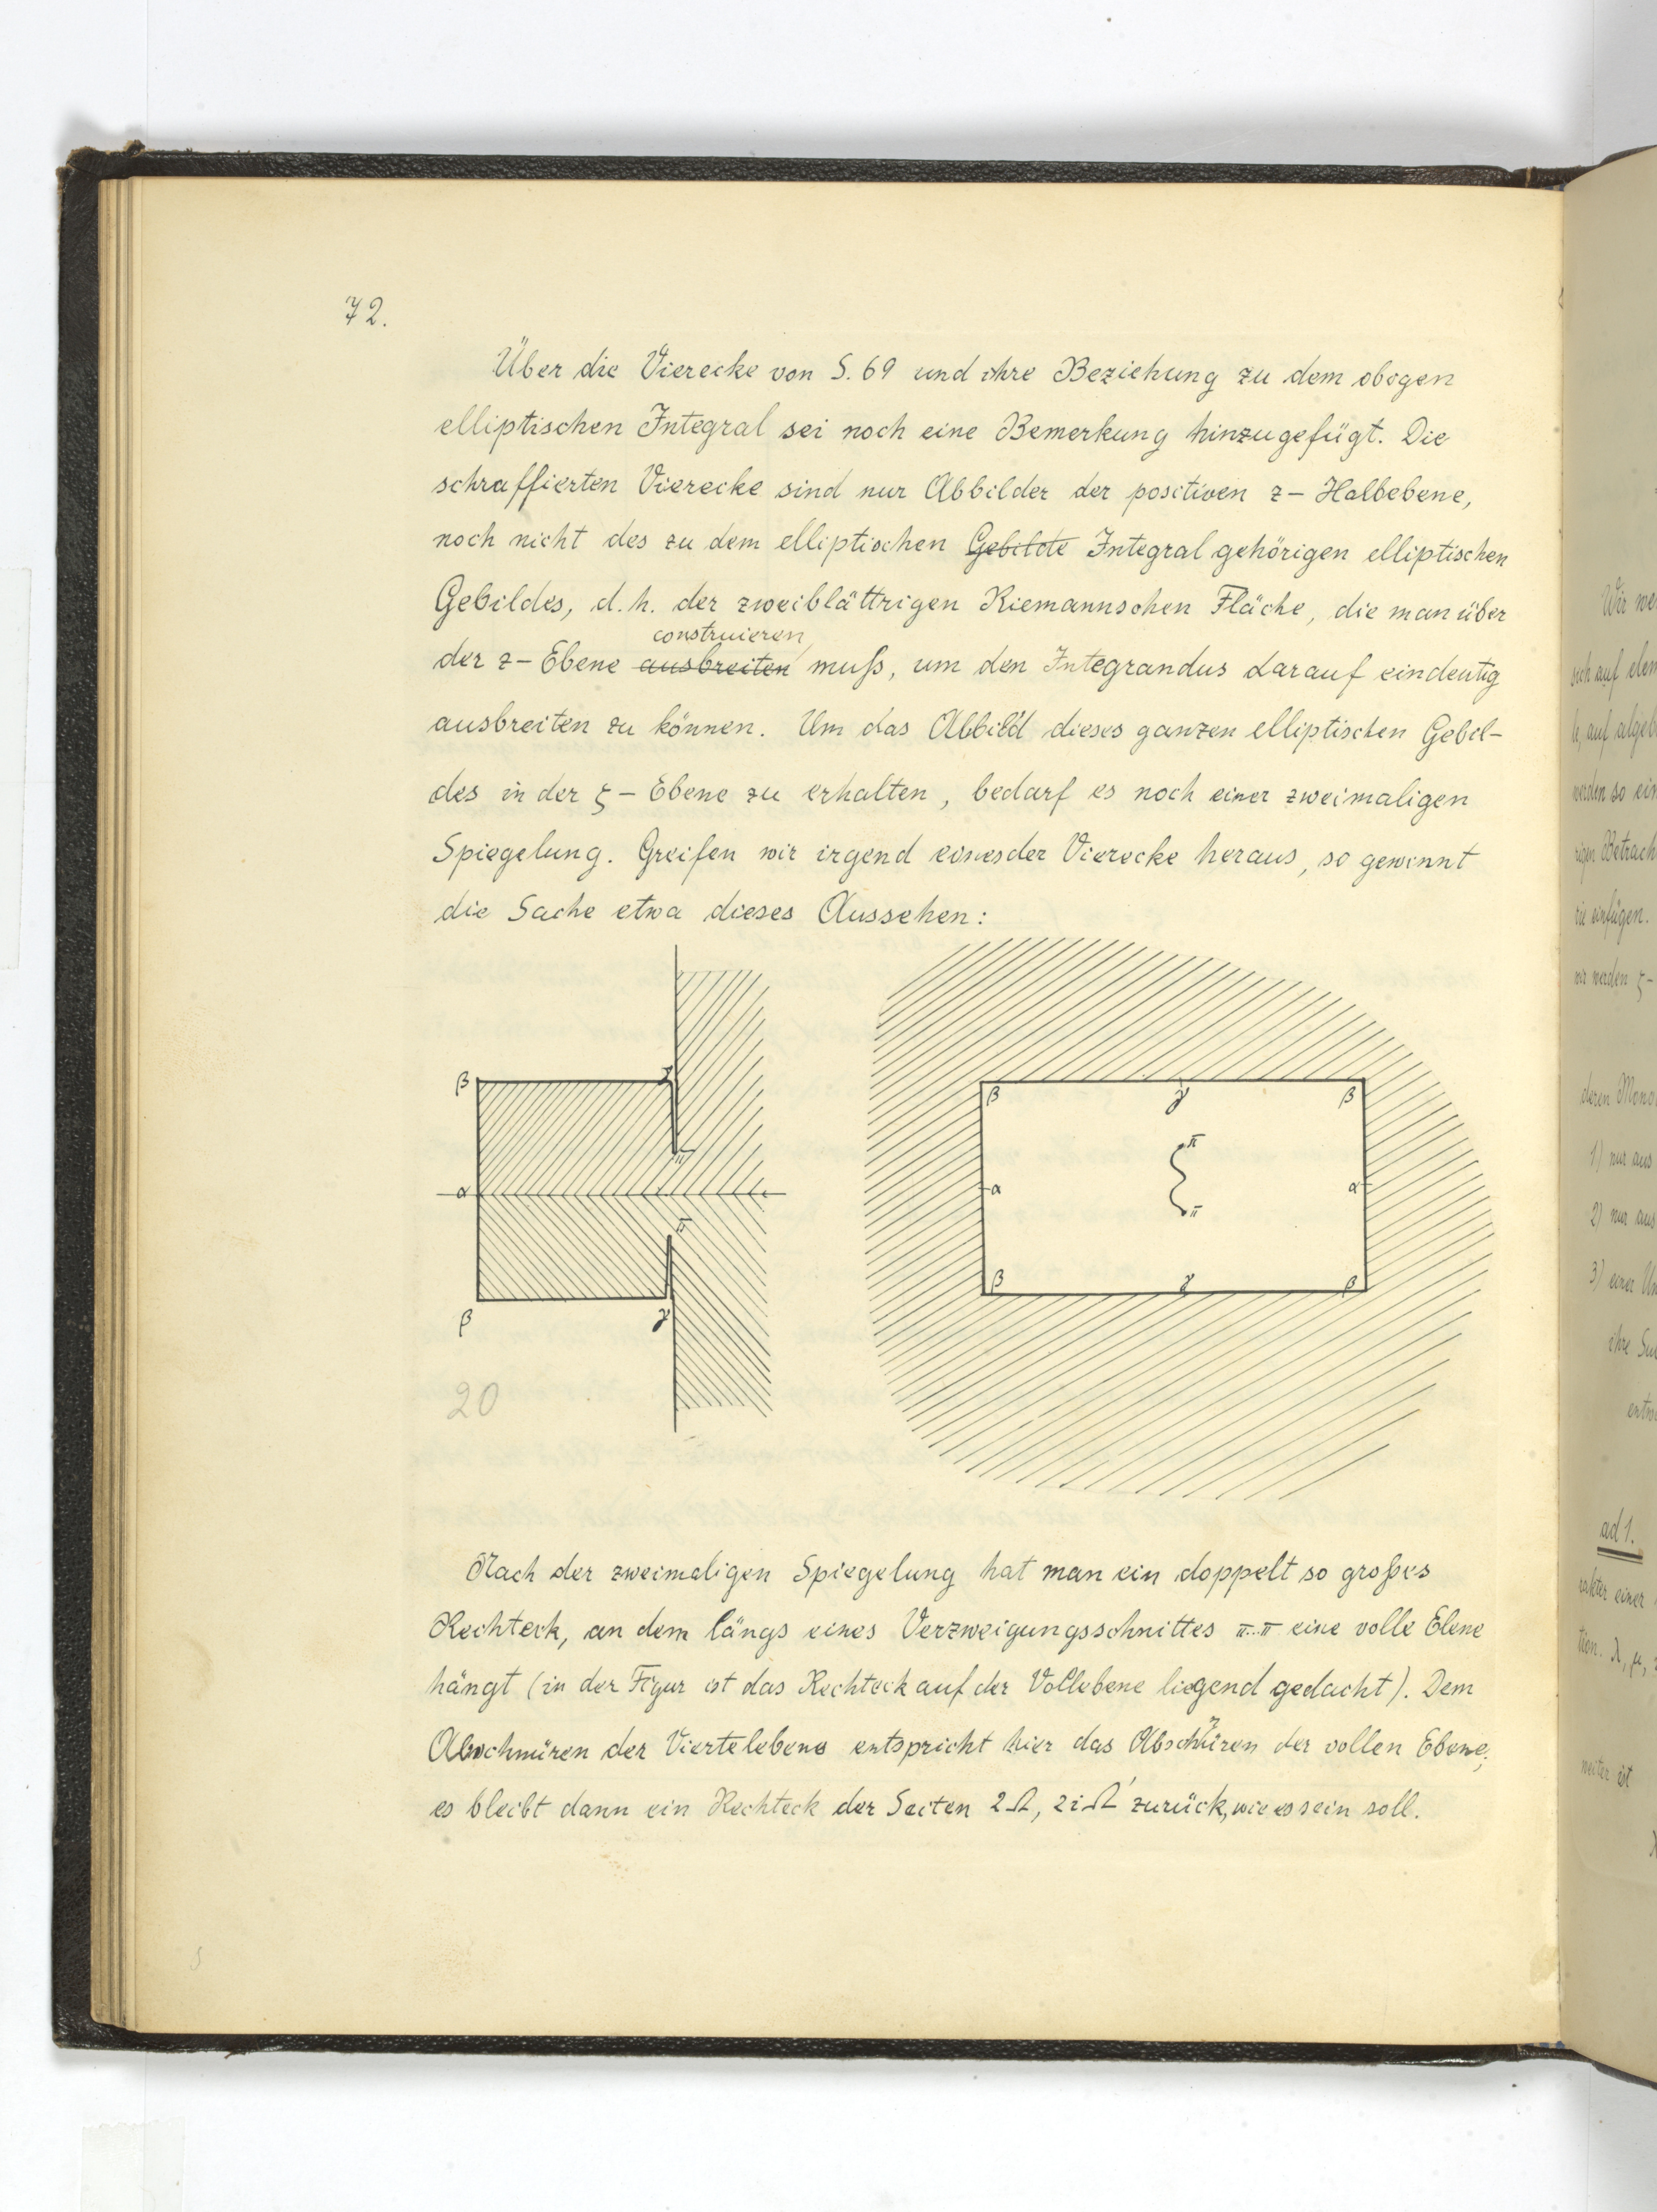 72.
Über die Vierecke von S. 69 und ihre Beziehung zu dem obigen
elliptischen Integral sei noch eine Bemerkung hinzugefügt. Die
schraffierten Vierecke sind nur Abbilder der positiven z- Halbebene,
noch nicht des zu dem elliptischen Gebilde Integral gehörigen elliptischen
Gebildes, d.h. der zweiblättrigen Riemannschen Fläche, die man über
construieren
der z- Ebene ausbreiten muß, um den Integrandus darauf eindeutig
ausbreiten zu können. Um das Abbild dieses ganzen elliptischen Gebil-
des in der ζ- Ebene zu erhalten, bedarf es noch einer zweimaligen
Spiegelung. Greifen wir irgend eines der Vierecke heraus, so gewinnt
die Sache etwa dieses Aussehen:
β γ
π
α
π
β γ
β γ β
π
α α
π
β γ β
20
Nach der zweimaligen Spiegelung hat man ein doppelt so großes
Rechteck, an dem längs eines Verzweigungsschnittes π..π eine volle Ebene
hängt (in der Figur ist das Rechteck auf der Vollebene liegend gedacht). Dem
Abschnüren der Viertelebene entspricht hier das Abschnüren der vollen Ebene;
es bleibt dann ein Rechteck der Seiten 2Ω, 2iΩ' zurück, wie es sein soll.
Wir we
sich auf
auf
werden so ein
Betrach
einfügen.
wir werden ζ-
deren Mono
1) nur aus
2) nur aus
3) einer Un
ihre
ad 1.
einer
λ, μ,
weiter ist